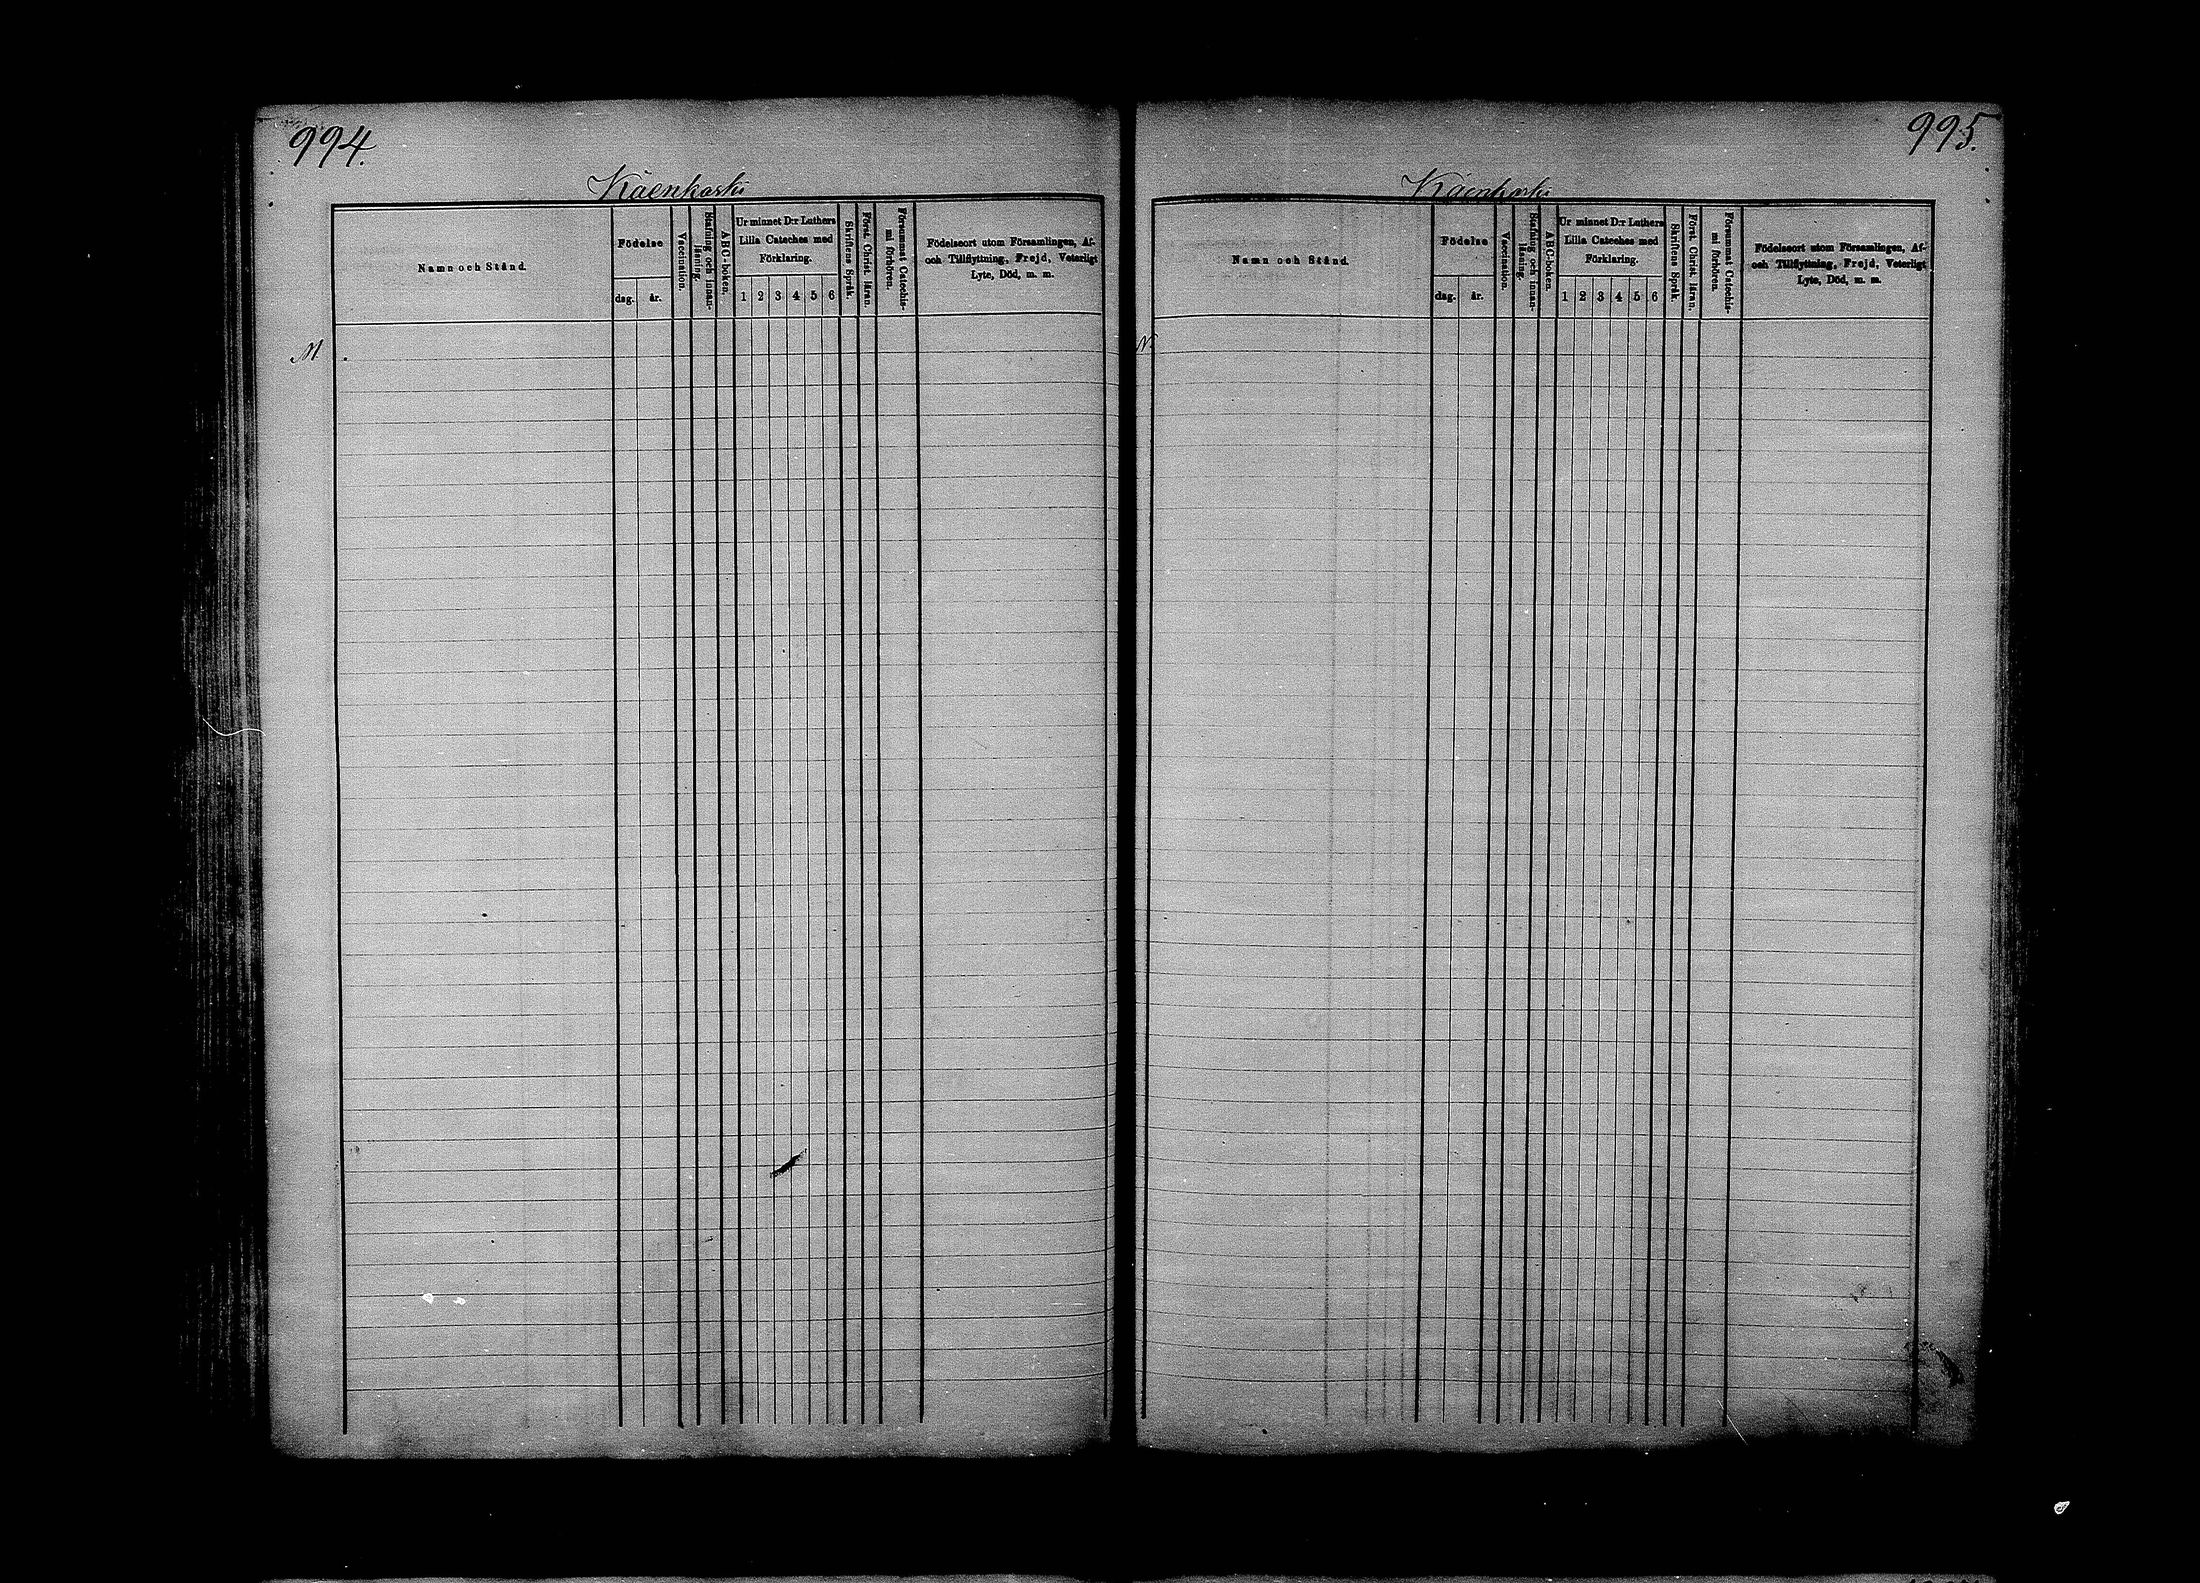 994.
Käenkoski
Namn och Stånd.
Födelse
dag.
år.
Vaccination.
Stafning och innan-
läsning.
ABC-boken.
Ur minnet D:r Luthers
Lilla Cateches med
Förklaring.
1 2 3 4 5 6
Skriftens Språk.
Först. Christ. läran.
Försummat Catechis-
mi förhören.
Födelseort utom Församlingen, Af-
och Tillflyttning, Frejd, Veterligt
Lyte, Död, m. m.
M
995.
Käenkoski
Namn och Stånd.
Födelse
dag.
år.
Vaccination.
Stafning och innan-
läsning.
ABC-boken.
Ur minnet D:r Luthers
Lilla Cateches med
Förklaring.
1 2 3 4 5 6
Skriftens Språk.
Först. Christ. läran.
Försummat Catechis-
mi förhören.
Födelseort utom Församlingen, Af-
och Tillflyttning, Frejd, Veterligt
Lyte, Död, m. m.
N